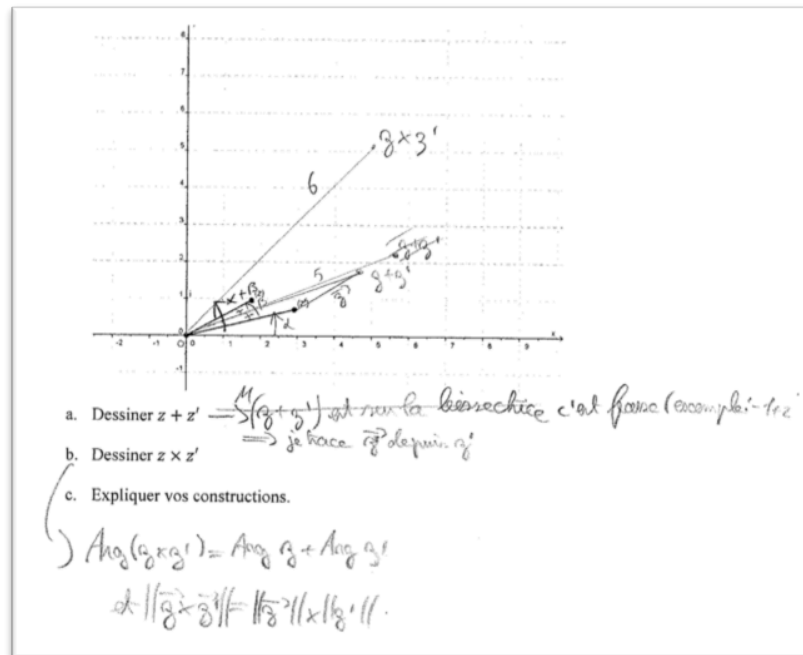 8
6
5
z × z'
6
4
3
2
z + z'
5
z + z'
1
α + β
z
β
z'
α
0
-2 -1 O 0 1 2 3 4 5 6 7 8 9 x
-1
a. Dessiner z + z' → M(z+z') est sur la bissectrice c'est faux (exemple i-1+2
⇒ je trace z depuis z'
b. Dessiner z × z'
c. Expliquer vos constructions.
) Arg(z×z') = Arg z + Arg z'
et ||z×z'|| = ||z|| × ||z'||.